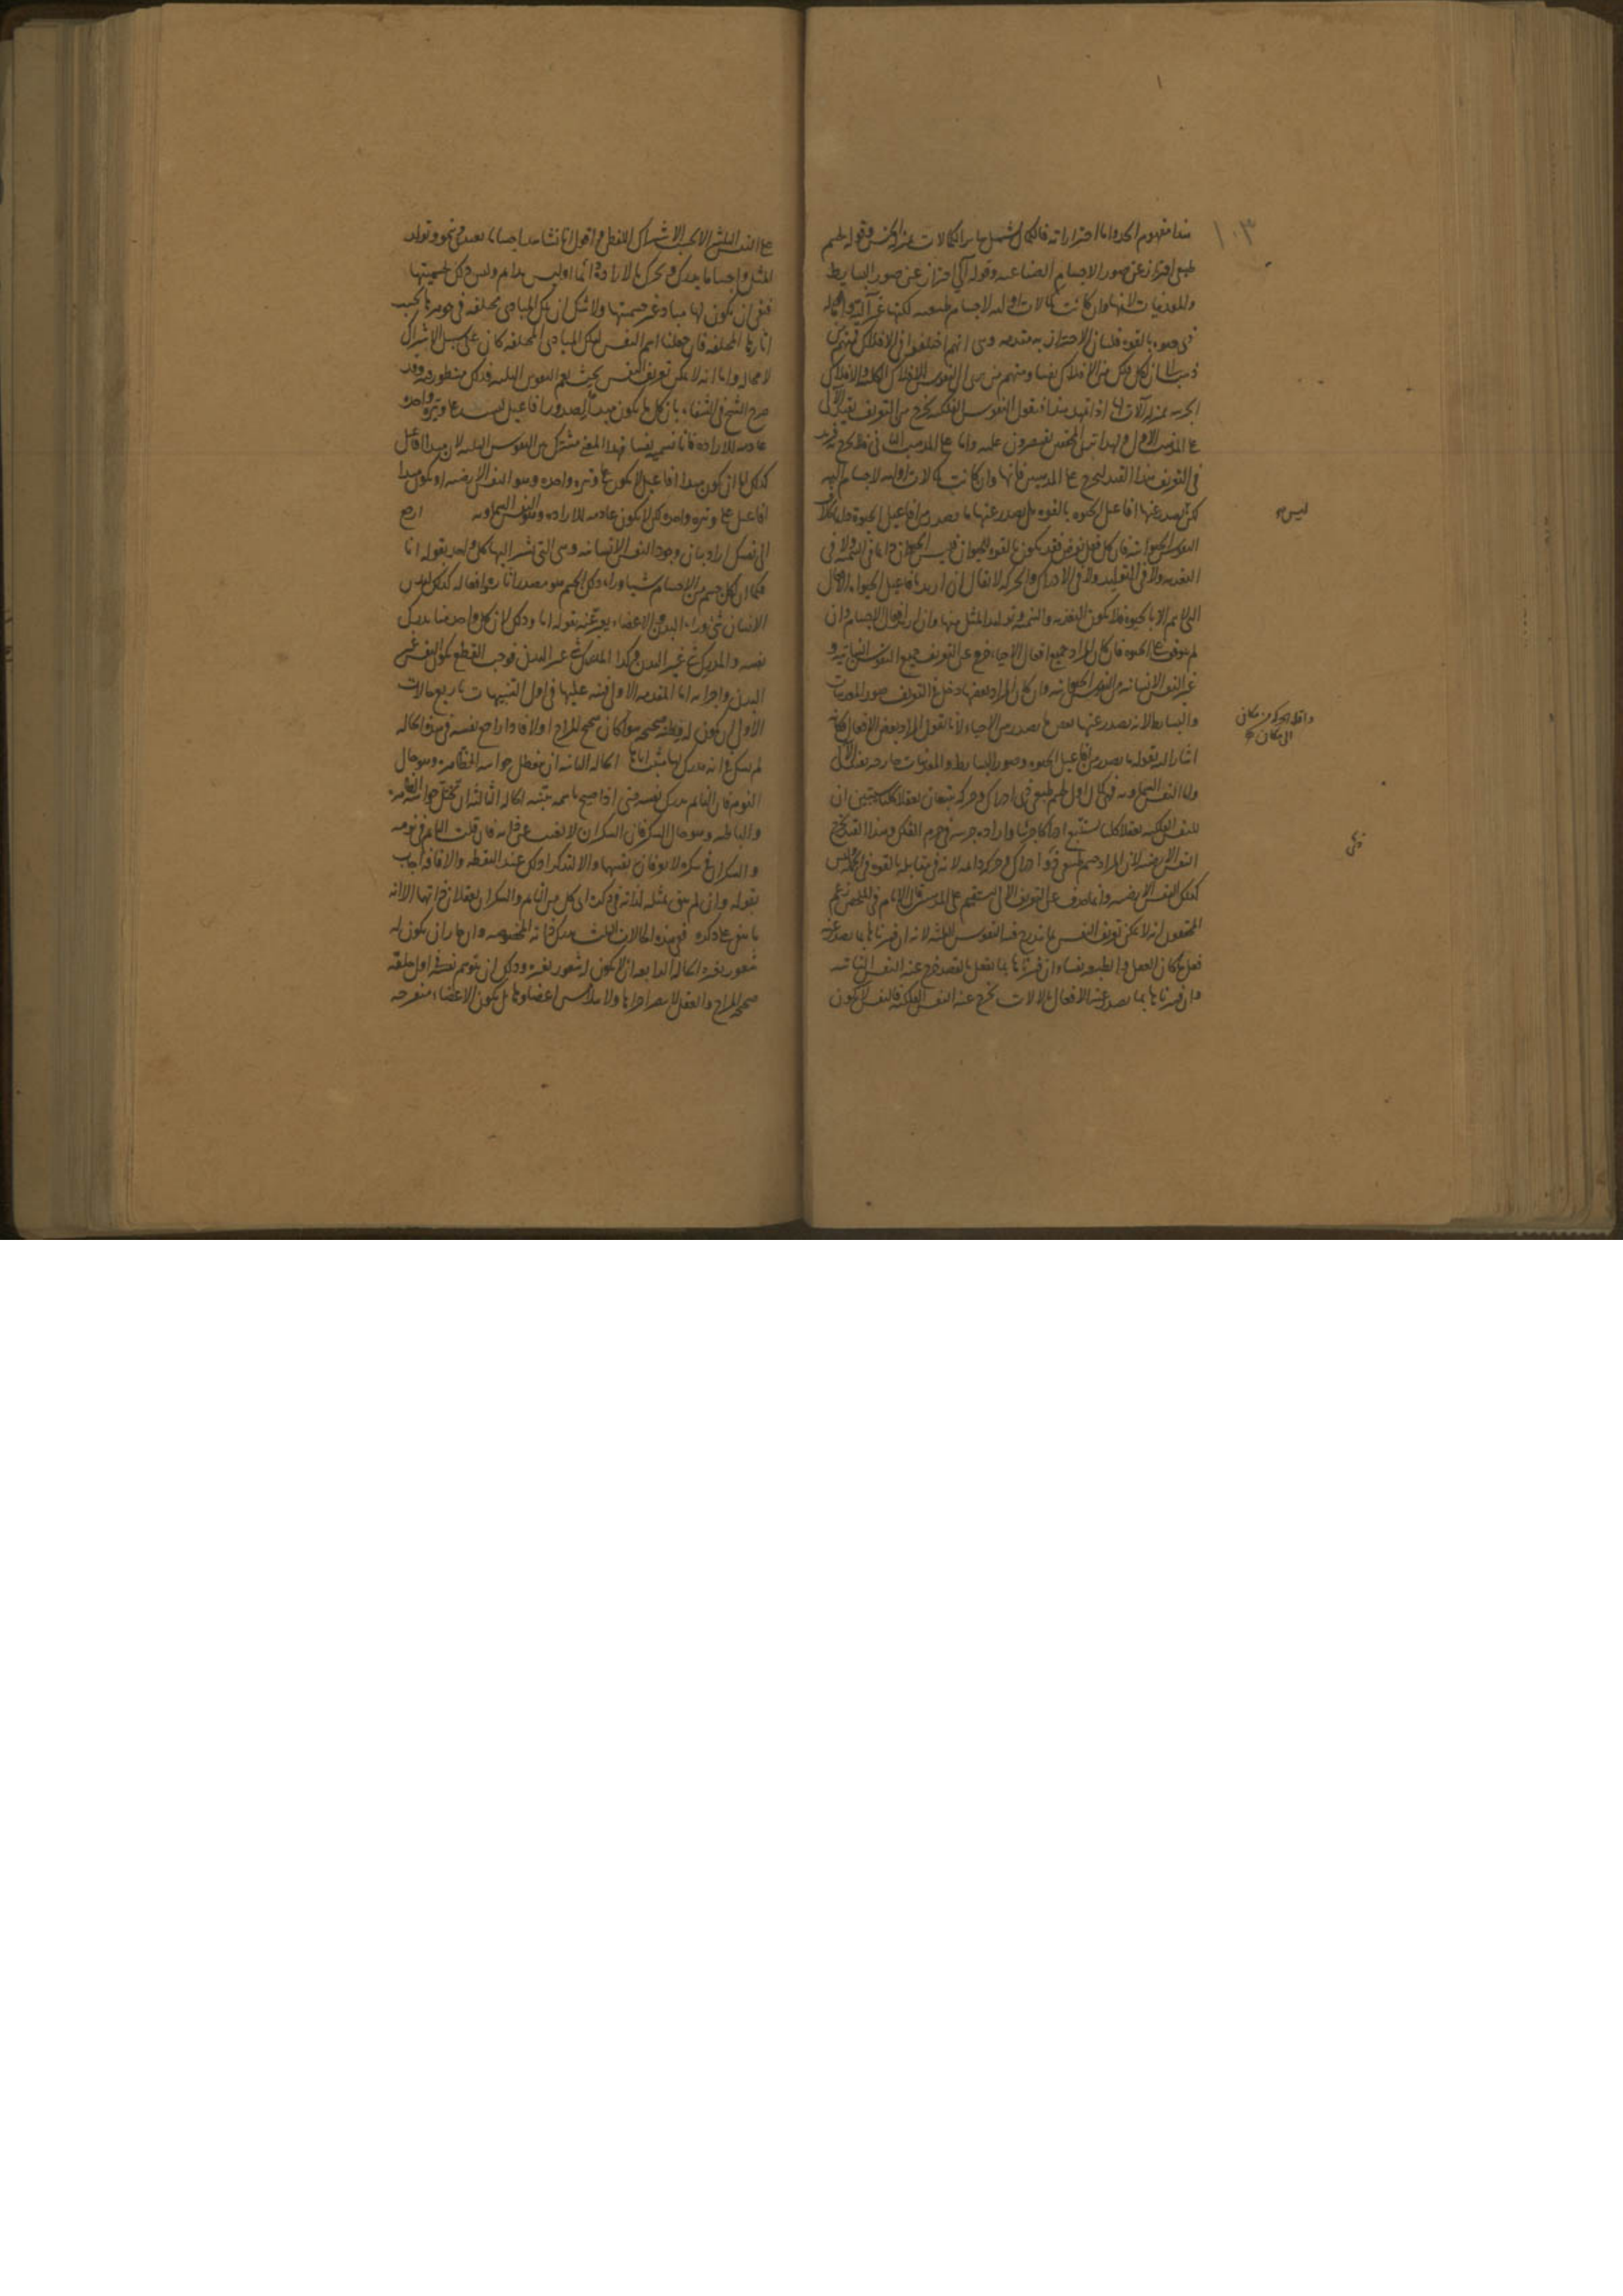 ١٠٣
هذا مفهوم الحد واما احترازاته فالكمال يشمل سائر الكمالات بمنزلة الجنس وقوله لجسم
طبيعى احتراز عن صور الاجسام الصناعيه وقوله آلى احتراز عن صور البسايط
والمعدنيات لانها وان كانت كمالات اوليه لاجسام طبيعيه لكنها غير آليه واما قوله
ذى حيوه بالقوه فلبيان الاحتراز به مقدمه وهى انهم اختلفوا فى الافلاك فمنهم من
ذهب الى ان لكل فلك من الافلاك نفسا ومنهم من يرى ان النفوس للافلاك الكليه والافلاك
الجزئيه بمنزله آلات لها اذا تمهد هذا فنقول النفوس الفلكيه تخرج من التعريف بقيد الآلى
على المذهب الاول ولهذا ترى المحققين يقتصرون عليه واما على المذهب الثانى فلا تخرج فزيد
فى التعريف هذا القيد لتخرج على المذهبين فانها وان كانت كمالات اوليه لاجسام آليه
لكن يصدر عنها افاعيل الحيوه بالقوه بل يصدر عنها ما يصدر من افاعيل الحيوه دايما بخلاف
النفوس الحيوانيه فان كل فعل يفرض فقد يكون بالقوه للحيوان فليس الحيوان دايما فى التنميه ولا فى
التغذيه ولا فى التوليد ولا فى الادراك والحركه لا يقال ان اريد بافاعيل الحيوه الافعال
التى لا يتم الا بالحيوه فلا يكون التغذيه والتنميه وتوليد المثل منها وان اريد افعال الاجسام وان
لم يتوقف على الحيوه فان كان المراد جميع افعال الاحياء خرج عن التعريف جميع النفوس النباتيه و
غير النفس الانسانيه من النفوس الحيوانيه وان كان المراد بعضها دخل فى التعريف صور المعدنيات
والبسايط لانه يصدر عنها بعض ما يصدر من الاحياء لانا نقول المراد بعض الافعال وكانه
اشار اليه بقوله ما يصدر من افاعيل الحيوه وصور البسايط والمعدنيات خارجه بقيد الآلى
واما النفس السماويه فهى كمال اول لجسم طبيعى ذى ادراك وحركه يتبعان تعقلا كليا سيتبين ان
للنفس الفلكيه تعقلا كليا يستتبع ادراكا جزئيا واراده جزئيه فى جرم الفلك وهذا القيد يخرج
النفس الارضيه لان المراد جسم طبيعى ذو ادراك وحركه دايمه لانه فى مقابله بالقوه فى الحد وليس
كذلك النفس الارضيه وانما صرف عن التعريف الآلى ليستقيم على المذهبين قال الامام فى الملخص زعم
المحققون انه لا يمكن تعريف النفس بما يندرج فيه النفوس الثلثه لانه ان فسرناها بما يصدر عنه
فعل ما كان العقل والطبيعه نفسا وان فسرناها بما يفعل بالقصد خرج عنه النفس النباتيه
وان فسرناها بما يصدر عنه الافعال بالالات خرج عنه النفس الفلكيه فالنفس لا يكون
ليس
وافلاكه من مكان
الى مكان
ذى
على النفس الثلثه الا بحسب الاشتراك اللفظى واقول انا نشاهد اجساما تغتذى وتنمو وتولد
المثل واجساما يدرك ويتحرك بالارادة اما اوليس بدايم وليس ذلك لجسميتها
فبقى ان يكون لها مبادى غير جسميتها ولا شك ان تلك المبادى مختلفه فى جوهرها بحسب
اثارها المختلفه فان جعلنا اسم النفس لتلك المبادى المختلفه كان على سبيل الاشتراك
لا محاله واما انه لا يمكن تعريف النفس بحيث يعم النفوس الثلثه فذلك منظور فيه وقد
صرح الشيخ فى الشفاء بان كل ما يكون مبدأ لصدور افاعيل ليست على وتيره واحده
عادمه للاراده فانا نسميه نفسا فهذا المعنى مشترك بين النفوس الثلثه لان مبدأ افاعيل
كذلك اما ان يكون مبدأ افاعيل لا يكون على وتيره واحده وهو النفس الارضيه او يكون مبدا
افاعيل على وتيره واحده لكن لا يكون عادمه للاراده وهو النفس السماويه ارجع
الى نفسك اراد بيان وجود النفس الانسانيه وهى التى يشير اليها كل واحد بقوله انا
فكما ان لكل جسم من الاجسام شيئا وراء ذلك الجسم هو مصدر آثاره وافعاله كذلك لبدن
الانسان شئ وراء البدن والاعضاء يعبر عنه بقوله انا وذلك لان كل واحد منا يدرك
نفسه والمدرك غير البدن وكذا المدرك غير البدن فوجب القطع بكون النفس غير
البدن واجزائه اما المقدمه الاولى فنبه عليها فى اول التنبيهات باربع حالات
الاولى ان يكون له فطنه صحيحه سواء كان صحيح المزاج اولا فاذا راجع نفسه فى هذه الحاله
لم يشك فى انه مدرك لها مثبت اياها الحاله الثانيه ان تعطل حواسه الظاهره وهو حال
النوم فان النايم مدرك نفسه حتى اذا صيح باسمه يتنبه الحاله الثالثه ان تختل حواسه الظاهره
والباطنه وهو حال السكر فان السكران لا يغيب عن ذاته فان قلت النايم فى نومه
والسكران فى سكره لا يعرفان نفسيهما والا لتذكرا ذلك عند اليقظه والافاقه اجاب
بقوله وان لم يبق تمثله لذاته فى ذكره اى كل من النايم والسكران يعقلان ذاتهما الا انه
ما يبقى على ذكره ففى هذه الحالات الثلث يدرك ذاته المخصوصه وان جاز ان يكون له
شعور بغيره الحاله الرابعه ان لا يكون له شعور بغيره وذلك ان يتوهم نفسه فى اول خلقه
صحيح المزاج والعقل لا يبصر اجزاءها ولا يتلامس اعضاؤها بل يكون الاعضاء منفرجه